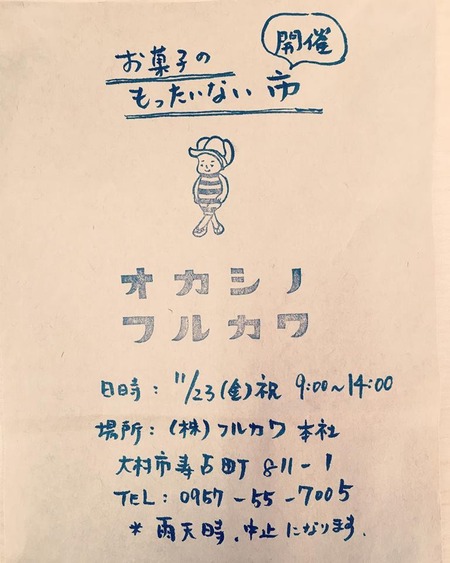 開催
お菓子の
もったいない市
オカシノ
フルカワ
日時： 11/23(金)祝 9:00~14:00
場所：(株)フルカワ 本社
大村市寿古町 811-1
TEL：0957-55-7005
* 雨天時、中止になります。